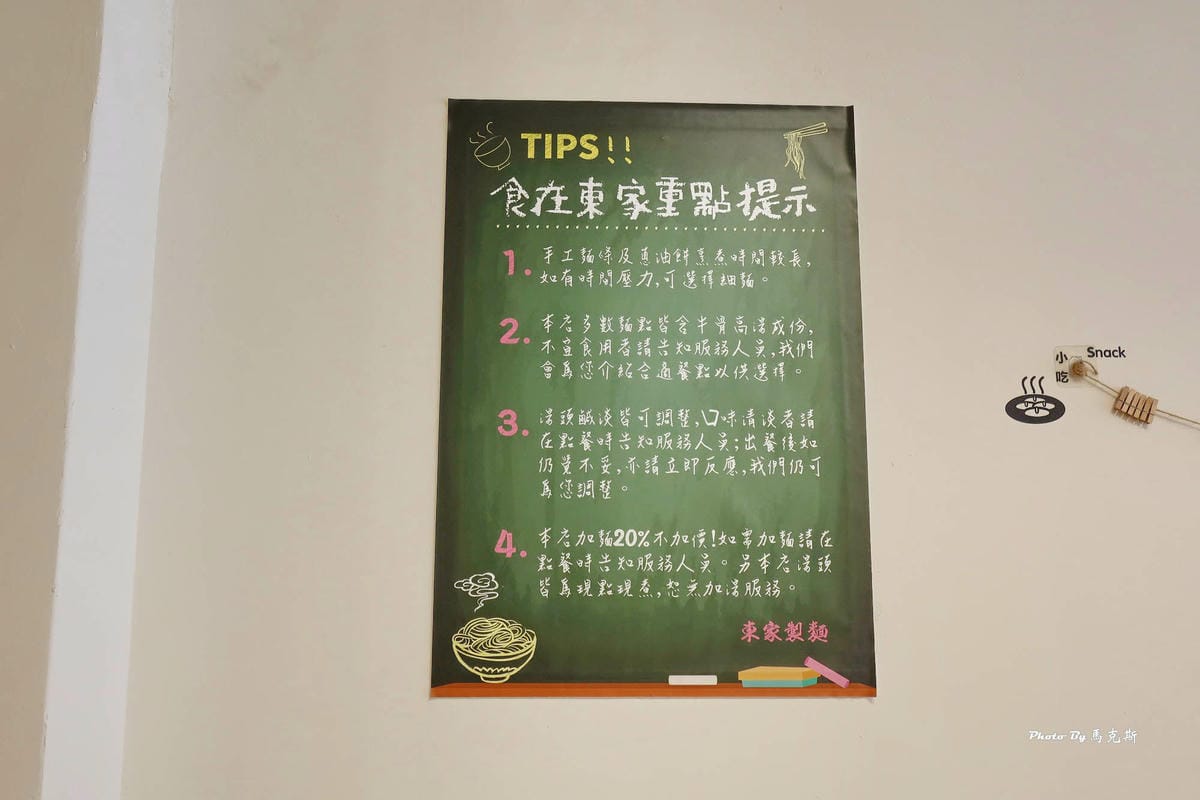 TIPS!!
食在東家重點提示
1. 手工麵條及蔥油餅烹煮時間較長,
如有時間壓力,可選擇細麵。
2. 本店多數麵點皆含牛骨高湯成份,
不宜食用者請告知服務人員,我們
會為您介紹合適餐點以供選擇。
3. 湯頭鹹淡皆可調整,口味清淡者請
在點餐時告知服務人員;出餐後如
仍覺不妥,亦請立即反應,我們仍可
為您調整。
4. 本店加麵20%不加價!如需加麵請在
點餐時告知服務人員。另本店湯頭
皆為現點現煮,恕無加湯服務。
東家製麵
小吃 Snack
Photo By 馬克斯